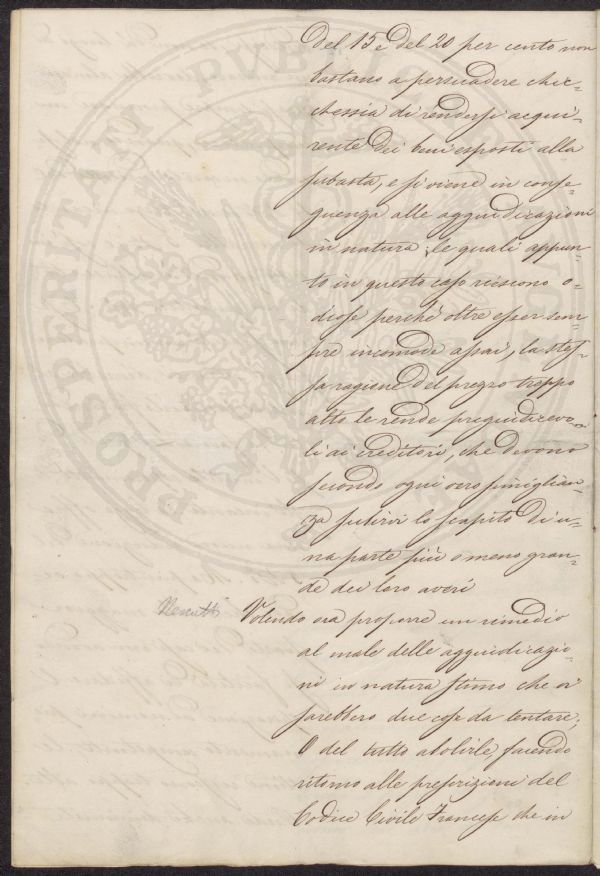 del 15 e del 20 per cento non
bastano a persuadere chic-
chessia di rendersi acqui-
rente dei beni esposti alla
subasta, e si viene in conse-
guenza alle aggiudicazioni
in natura; le quali appun-
to in questo caso riescono o-
diose perché oltre esser sem-
pre incomode assai, la stes-
sa ragione del prezzo troppo
alto le rende pregiudicevo-
li ai creditori, che devono
secondo ogni verosimiglian-
za subirvi lo scapito di u-
na parte più o meno gran-
de dei loro averi
Volendo ora proporre un rimedio
al male delle aggiudicazio-
ni in natura stimo che vi
sarebbero due cose da tentare;
O del tutto abolirle, facendo
ritorno alle prescrizioni del
Codice Civile Francese che in
PROSPERITATI PUBLICAE